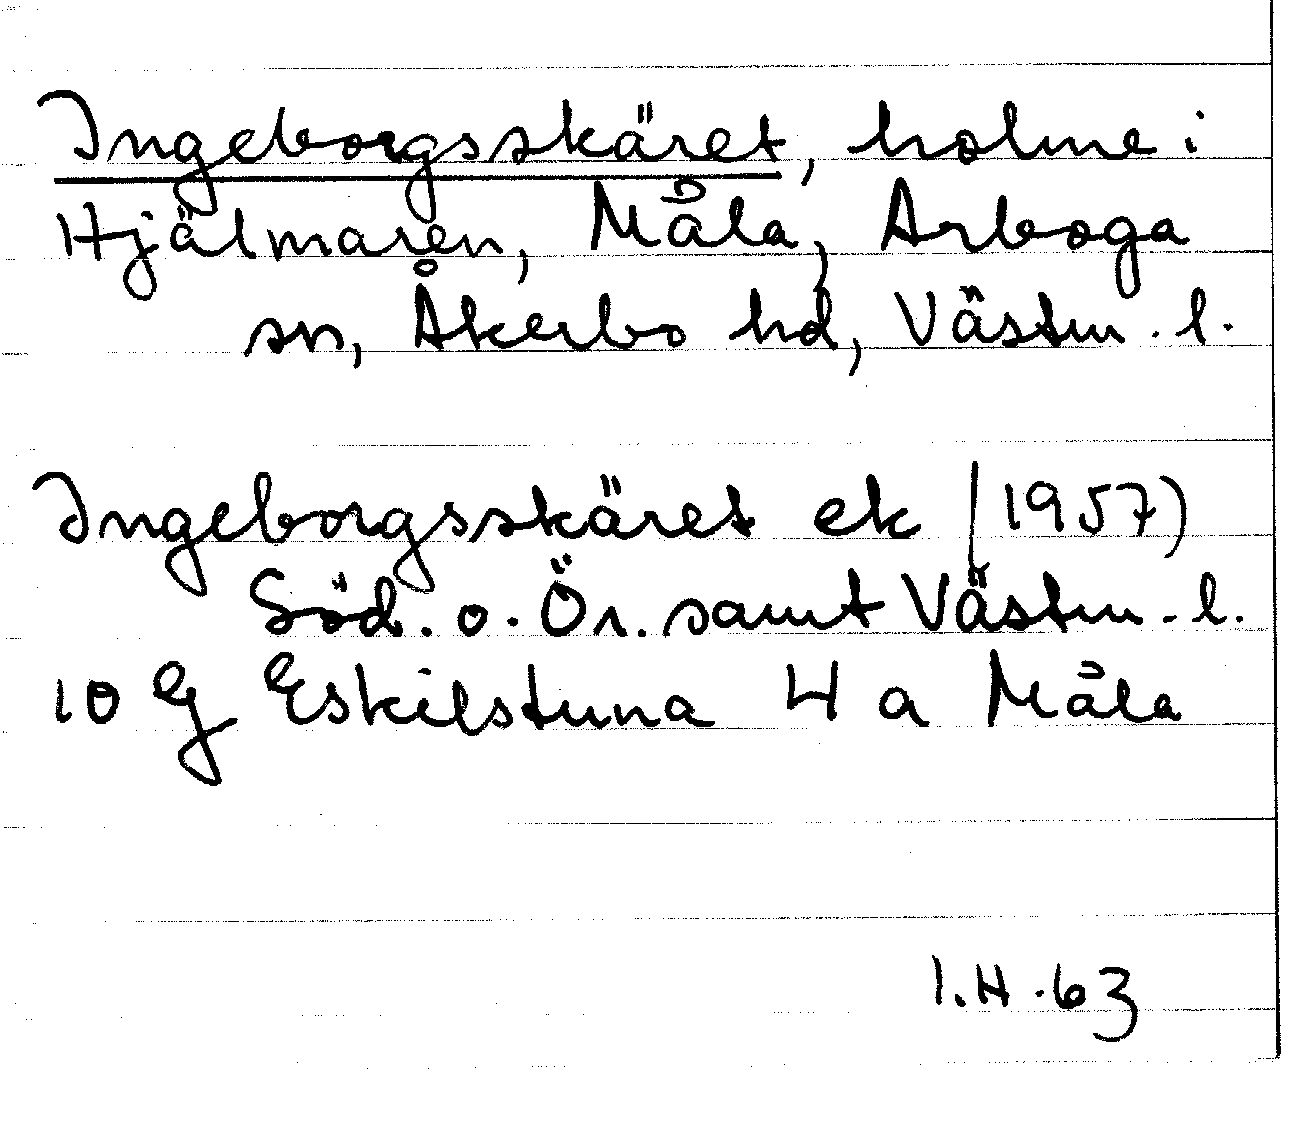 Ingeborgsskäret, holme i
Hjälmaren, Måla, Arboga
sn, Åkerbo hd, Västm. l.
Ingeborgsskäret ek (1957)
Söd. o. Ör. samt Västm. l.
10 G Eskilstuna 4 a Måla
I.H. 63